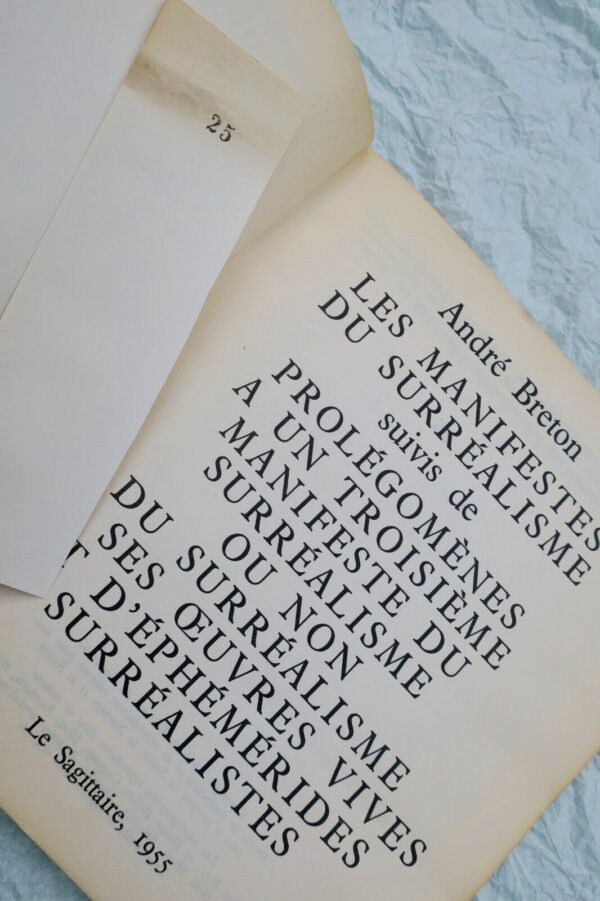 25
André Breton
LES MANIFESTES
DU SURRÉALISME
suivis de
PROLÉGOMÈNES
A UN TROISIÈME
MANIFESTE DU
SURRÉALISME
OU NON
DU SURRÉALISME
SES ŒUVRES VIVES
T D'ÉPHÉMÉRIDES
SURRÉALISTES
Le Sagittaire, 1955